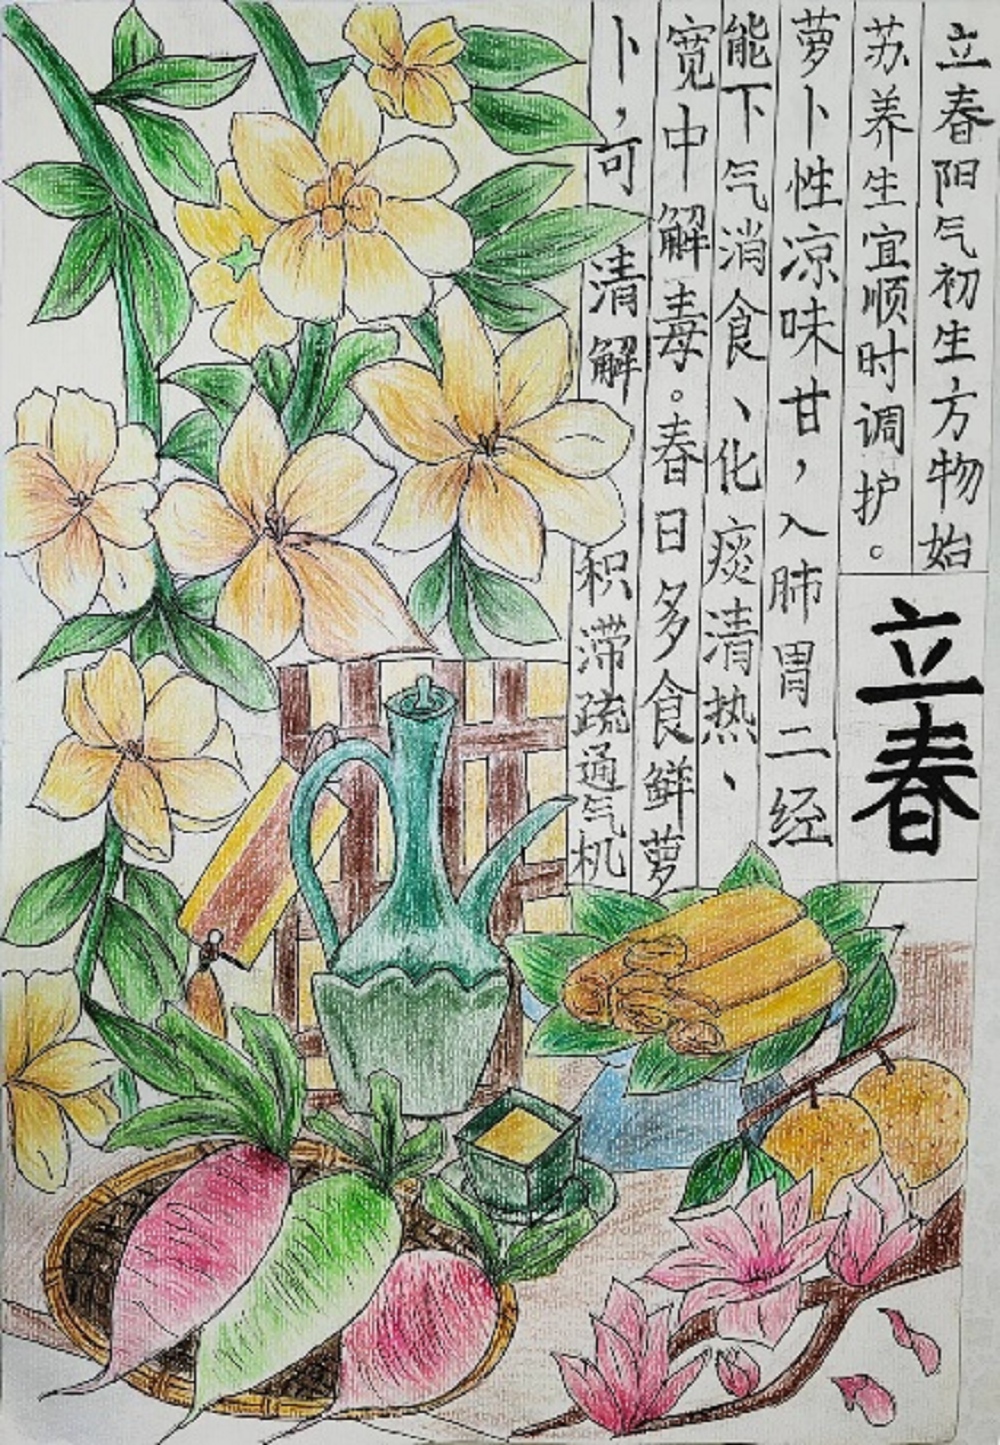 立春阳气初生方物始
苏养生宜顺时调护。
萝卜性凉味甘，入肺胃二经
能下气消食、化痰清热、
宽中解毒。春日多食鲜萝
卜，可清解积滞疏通气机
立春